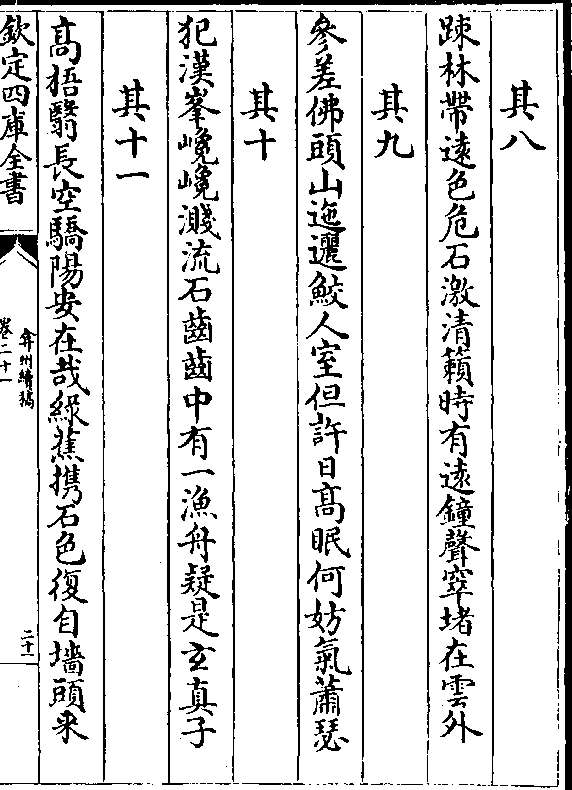 其八
踈林帶遠色危石激清籟時有遠鐘聲窣堵在雲外
其九
參差佛頭山迤邐鮫人室但許日髙眠何妨氣蕭瑟
其十
犯漢峯巉巉濺流石齒齒中有一漁舟疑是玄真子
其十一
髙梧翳長空驕陽安在哉綠蕉携石色復自墻頭来
欽定四庫全書
弇州續稿
卷二十一
二十一